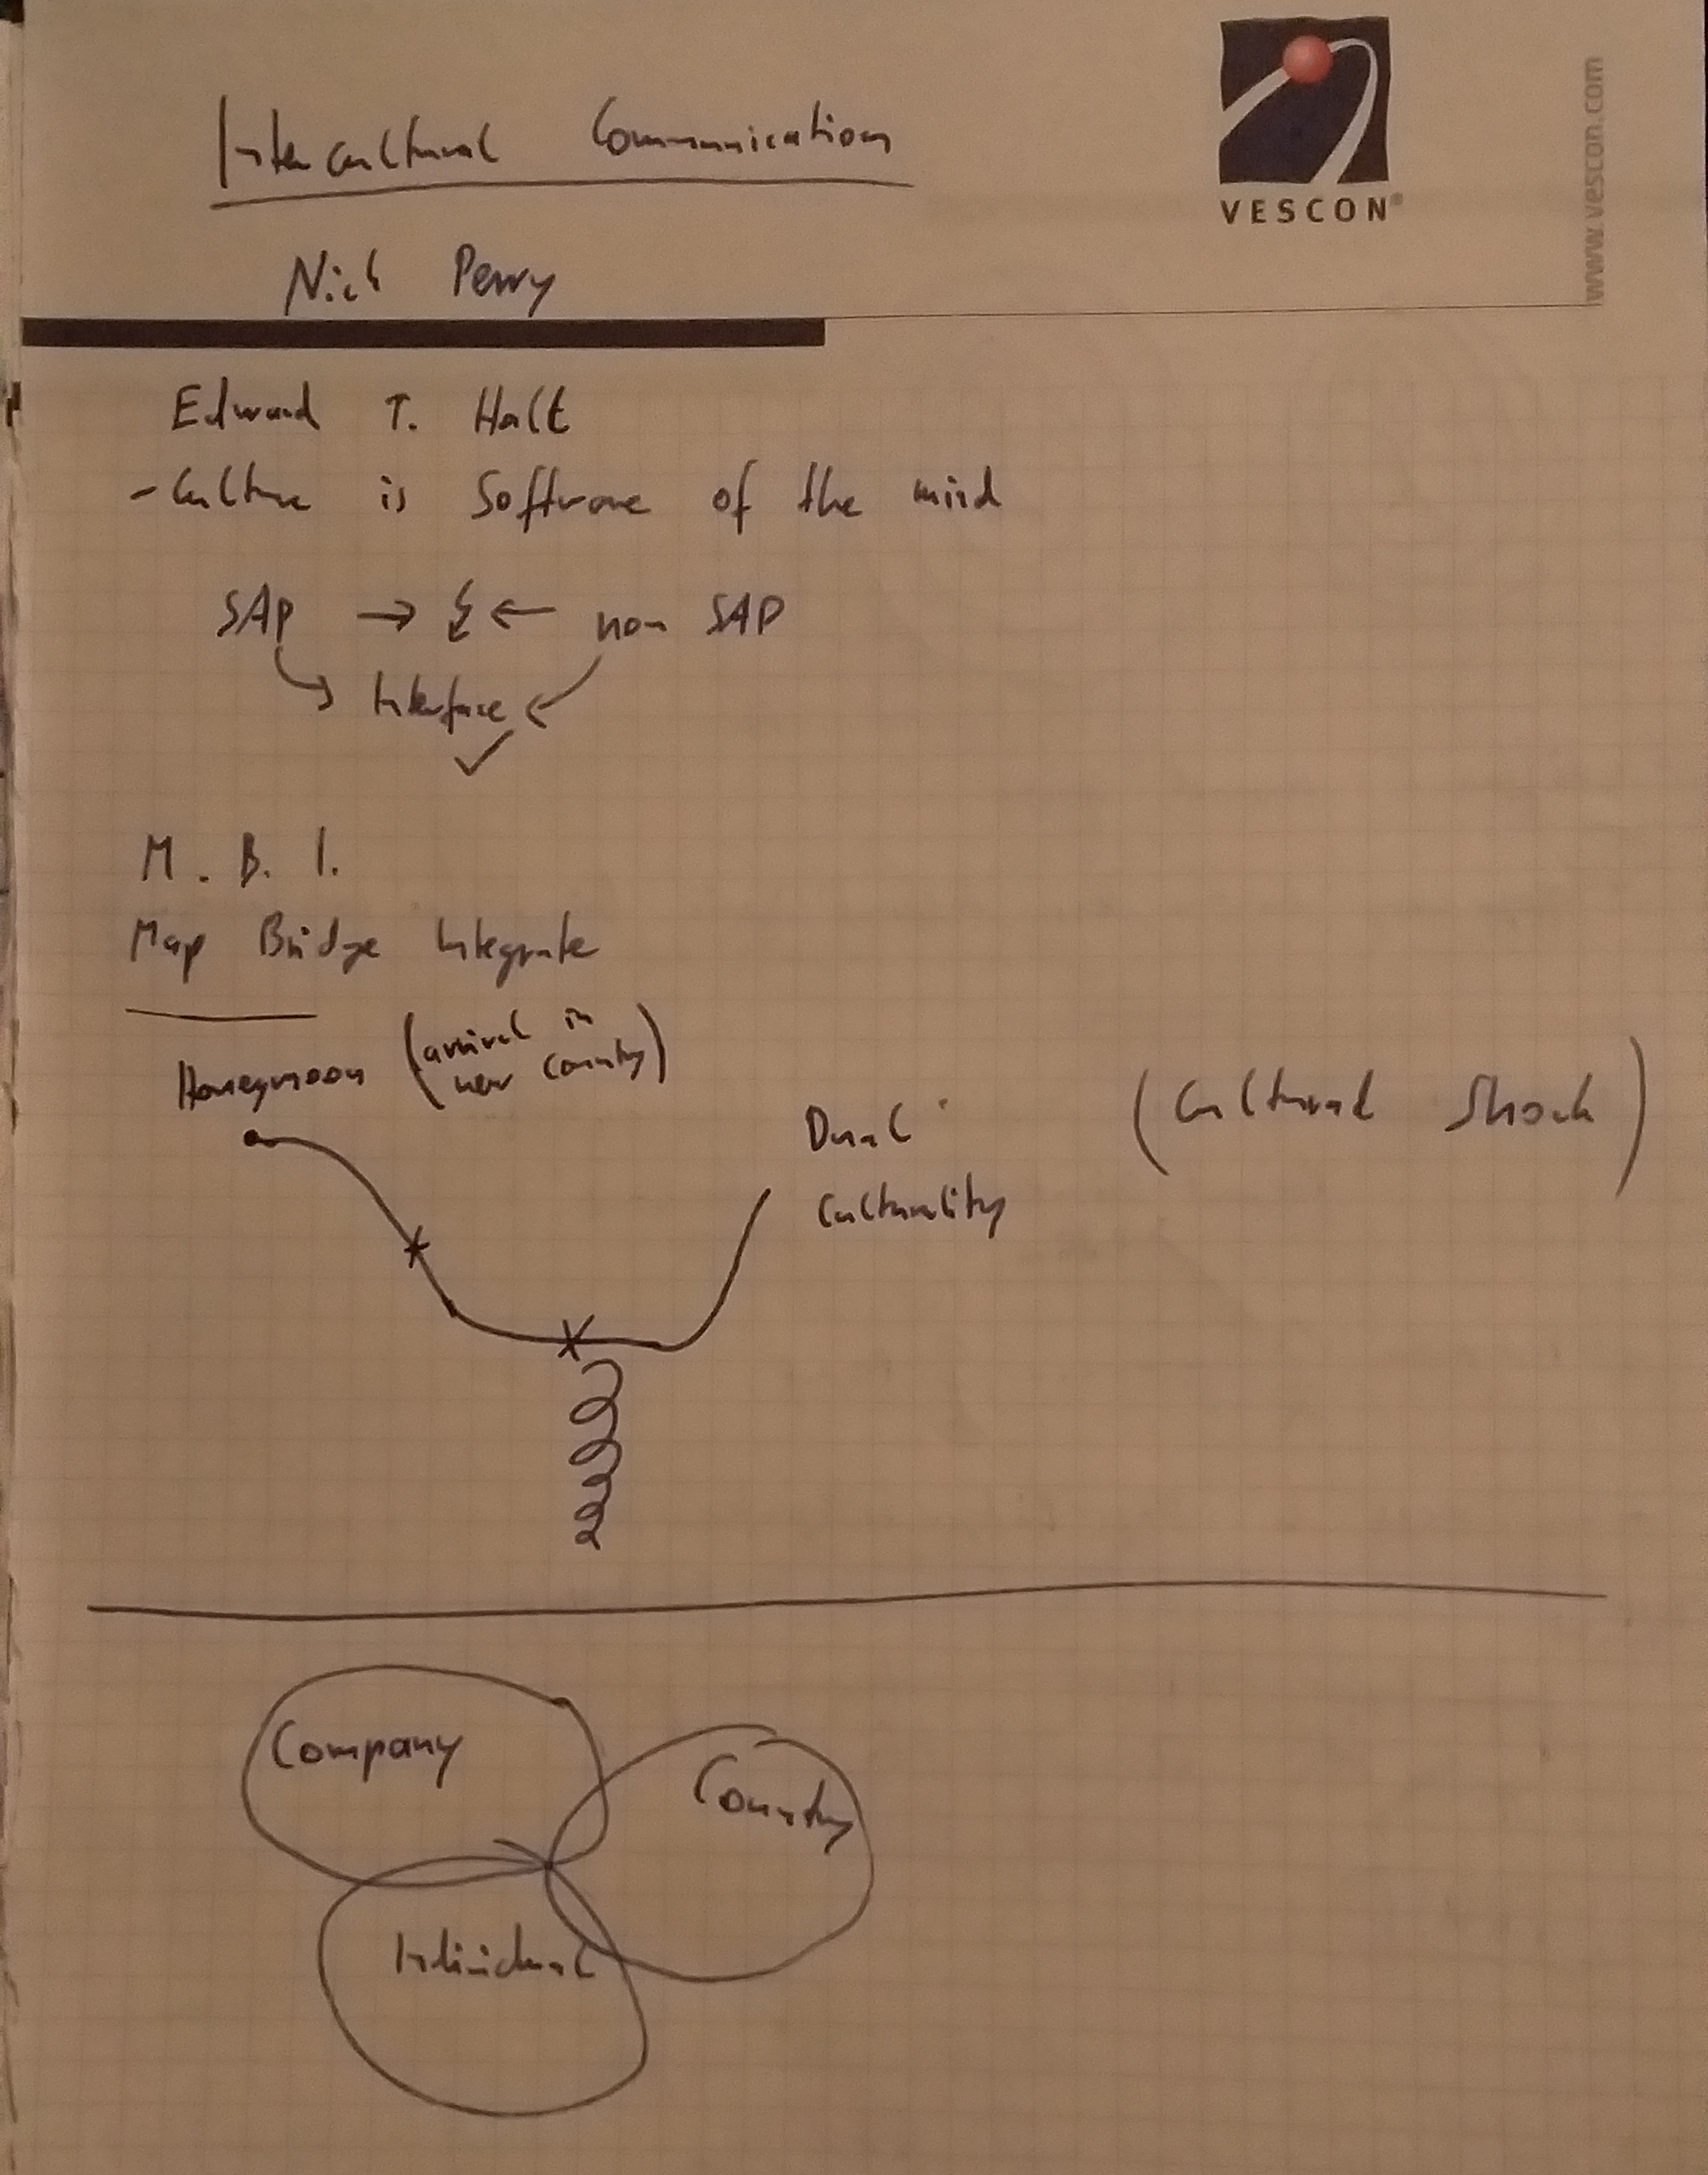 Intercultural Communication
VESCON
www.vescon.com
Nick Perry
Edward T. Halt
- Culture is Software of the mind
SAP → ← non SAP
Interface
M. B. I.
Map Bridge Integrate
Honeymoon (arrival in
new country)
Dual
Culturality
(Cultural Shock)
Company
Country
Individual